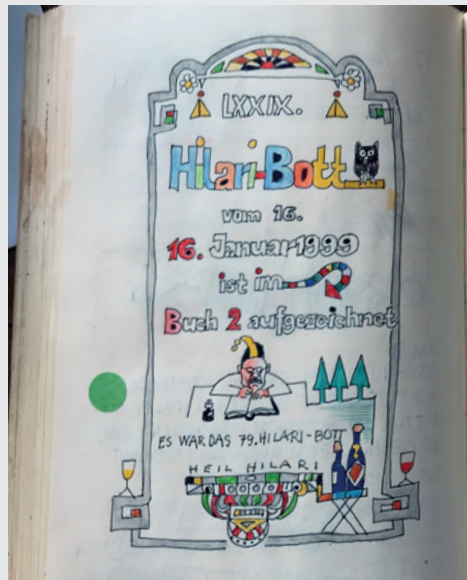 LXXIX.
Hilari-Bott
vom 16.
16. Januar 1999
ist im
Buch 2 aufgezeichnet
ES WAR DAS 79. HILARI-BOTT
HEIL HILARI